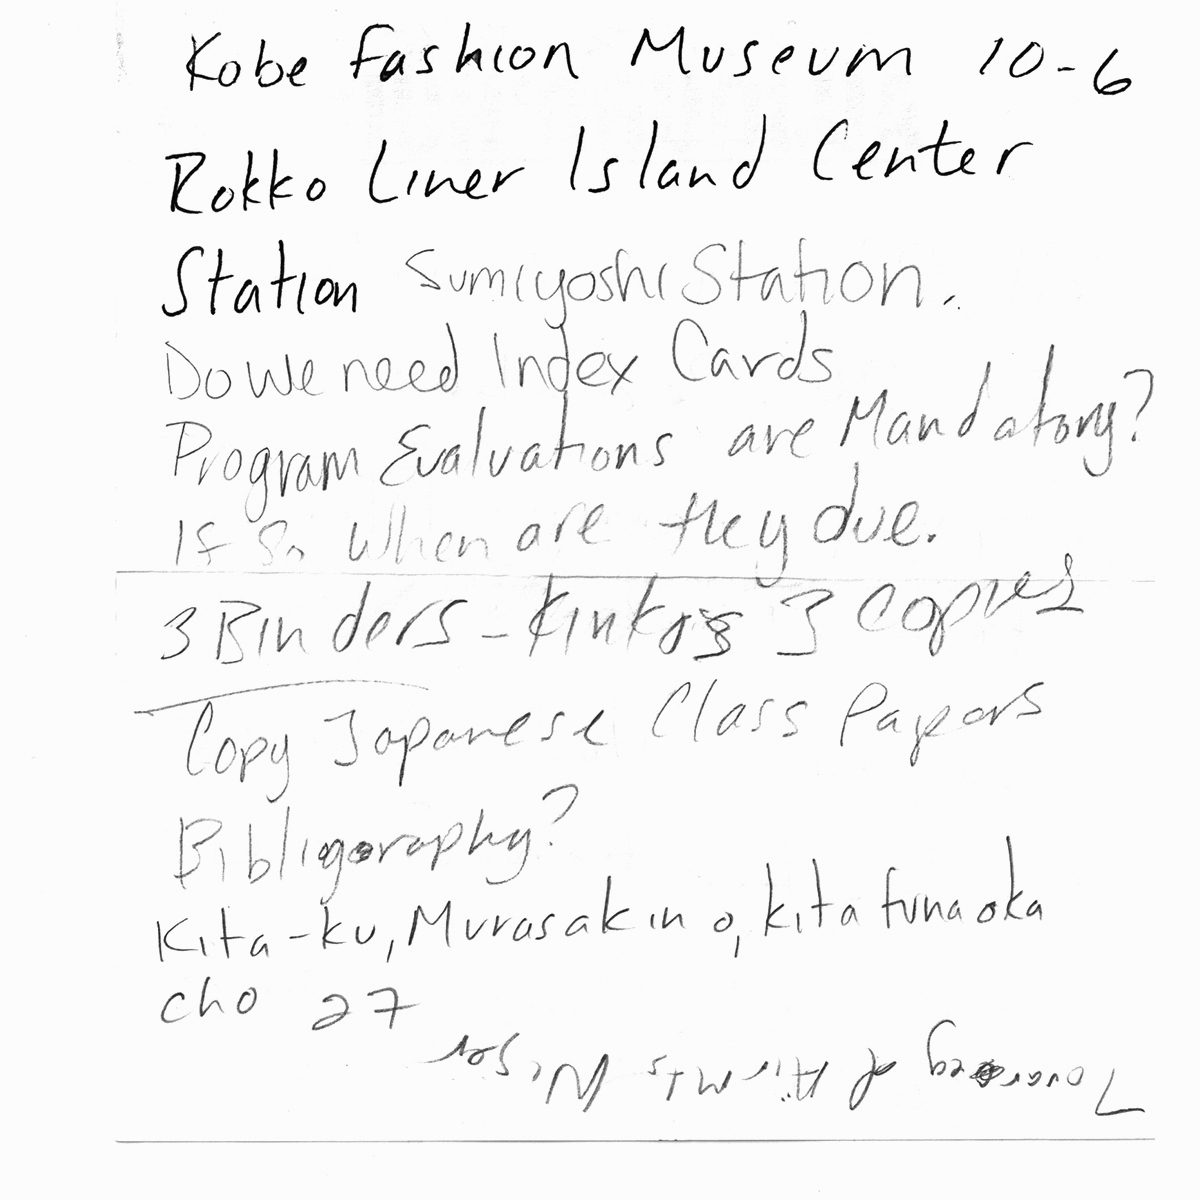 Kobe Fashion Museum 10-6
Rokko Liner Island Center
Station Sumiyoshi Station.
Do we need Index Cards
Program Evaluations are Mandatory?
If So When are they due.
3 Binders - Kinko's 3 Copies
Copy Japanese Class Papers
Bibligoraphy?
Kita-ku, Murasakino, kitafunaoka
cho 27